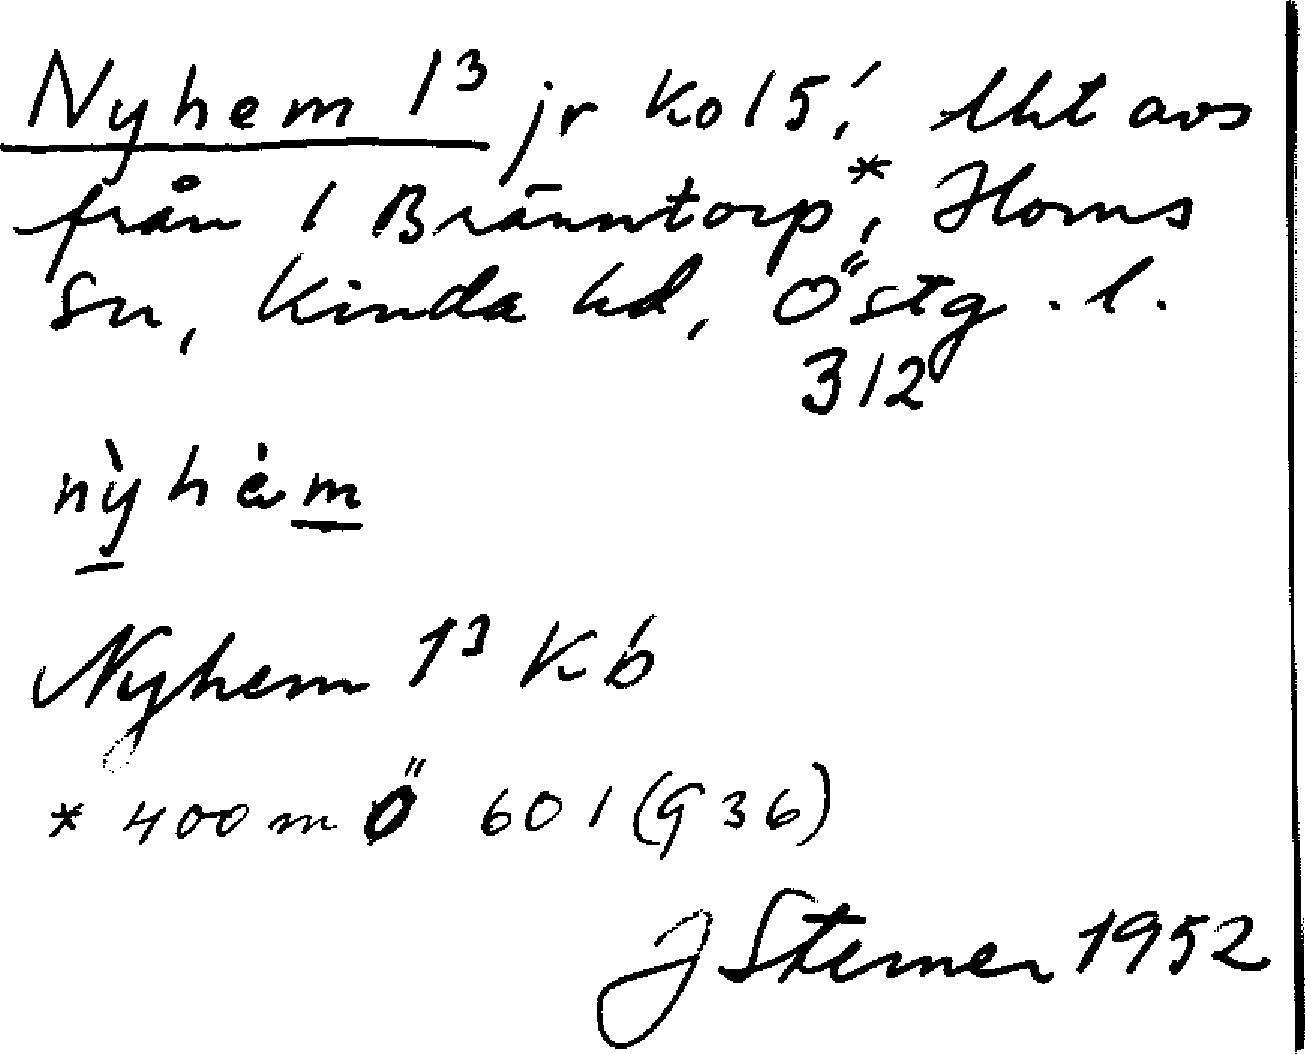 Nyhem 1³ jr Ko 15; lht avs
från 1 Bränntorp*, Horns
sn, Kinda hd, Östg. l.
312
nỳhèm
Nyhem 1³ Kb
* 400 m Ö 601 (936)
J Sterner 1952